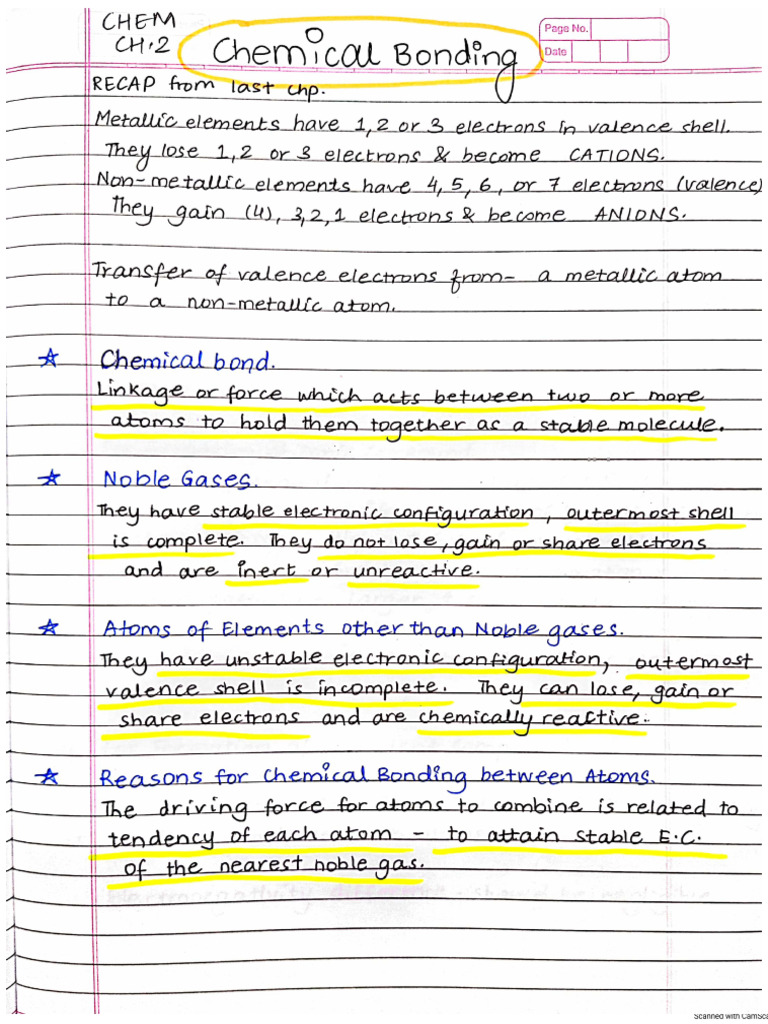 CHEM
CH.2
Chemical Bonding
Page No.
Date
RECAP from last chp.
Metallic elements have 1,2 or 3 electrons in valence shell.
They lose 1,2 or 3 electrons & become CATIONS.
Non-metallic elements have 4,5,6, or 7 electrons (valence)
They gain (4), 3,2,1 electrons & become ANIONS.
Transfer of valence electrons from- a metallic atom
to a non-metallic atom.
☆ Chemical bond.
Linkage or force which acts between two or more
atoms to hold them together as a stable molecule.
☆ Noble Gases.
They have stable electronic configuration, outermost shell
is complete. They do not lose, gain or share electrons
and are inert or unreactive.
☆ Atoms of Elements other than Noble gases.
They have unstable electronic configuration, outermost
valence shell is incomplete. They can lose, gain or
share electrons and are chemically reactive.
☆ Reasons for Chemical Bonding between Atoms.
The driving force for atoms to combine is related to
tendency of each atom - to attain stable E.C.
of the nearest noble gas.
Scanned with CamSca